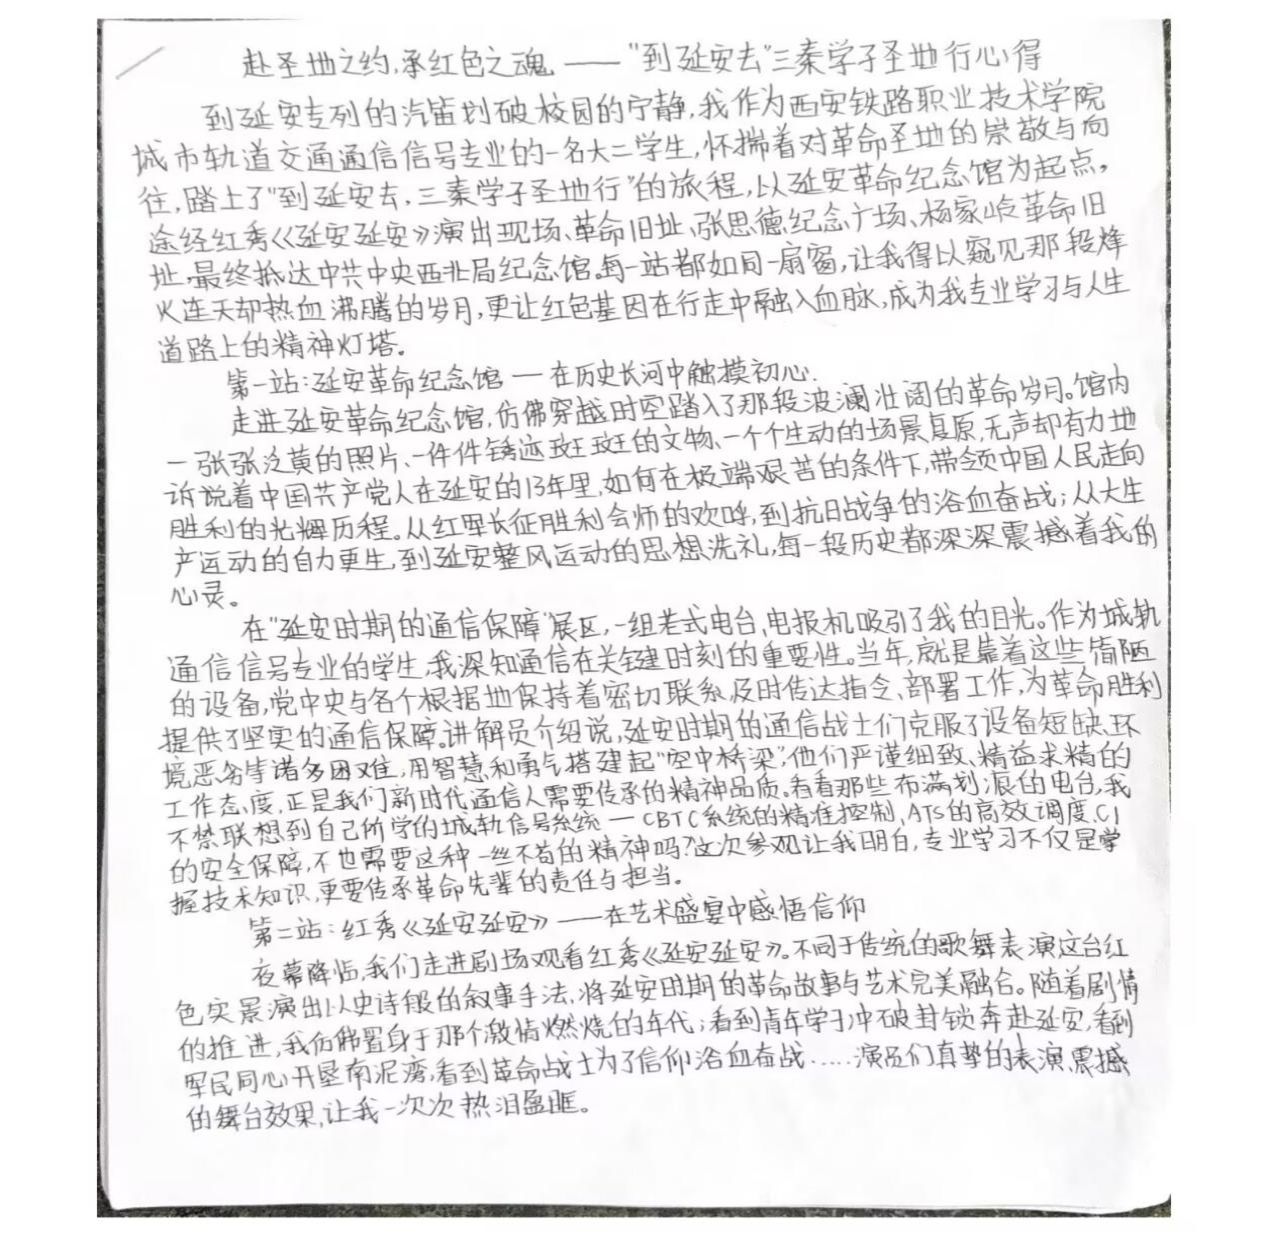 赴圣地之约,承红色之魂 ——"到延安去"三秦学子圣地行心得
到延安专列的汽笛划破校园的宁静,我作为西安铁路职业技术学院
城市轨道交通通信信号专业的一名大二学生,怀揣着对革命圣地的崇敬与向
往,踏上了"到延安去,三秦学子圣地行"的旅程,以延安革命纪念馆为起点,
途经红秀《延安延安》演出现场、革命旧址、张思德纪念广场、杨家岭革命旧
址,最终抵达中共中央西北局纪念馆。每一站都如同一扇窗,让我得以窥见那段烽
火连天却热血沸腾的岁月,更让红色基因在行走中融入血脉,成为我专业学习与人生
道路上的精神灯塔。
第一站:延安革命纪念馆 — 在历史长河中触摸初心.
走进延安革命纪念馆,仿佛穿越时空踏入了那段波澜壮阔的革命岁月。馆内
一张张泛黄的照片、一件件锈迹斑斑的文物、一个个生动的场景复原,无声却有力地
诉说着中国共产党人在延安的13年里,如何在极端艰苦的条件下,带领中国人民走向
胜利的光辉历程。从红军长征胜利会师的欢呼,到抗日战争的浴血奋战;从大生
产运动的自力更生,到延安整风运动的思想洗礼,每一段历史都深深震撼着我的
心灵。
在"延安时期的通信保障"展区,一组老式电台、电报机吸引了我的目光。作为城轨
通信信号专业的学生,我深知通信在关键时刻的重要性。当年,就是靠着这些简陋
的设备,党中央与各个根据地保持着密切联系,及时传达指令、部署工作,为革命胜利
提供了坚实的通信保障。讲解员介绍说,延安时期的通信战士们克服了设备短缺、环
境恶劣等诸多困难,用智慧和勇气搭建起"空中桥梁",他们严谨细致、精益求精的
工作态度,正是我们新时代通信人需要传承的精神品质。看着那些布满划痕的电台,我
不禁联想到自己所学的城轨信号系统 — CBTC系统的精准控制、ATS的高效调度、CI
的安全保障,不也需要这种一丝不苟的精神吗?这次参观让我明白,专业学习不仅是掌
握技术知识,更要传承革命先辈的责任与担当。
第二站:红秀《延安延安》 ——在艺术盛宴中感悟信仰
夜幕降临,我们走进剧场观看红秀《延安延安》。不同于传统的歌舞表演这台红
色实景演出以史诗般的叙事手法,将延安时期的革命故事与艺术完美融合。随着剧情
的推进,我仿佛置身于那个激情燃烧的年代;看到青年学习冲破封锁奔赴延安,看到
军民同心开垦南泥湾,看到革命战士为了信仰浴血奋战……演员们真挚的表演,震撼
的舞台效果,让我一次次热泪盈眶。